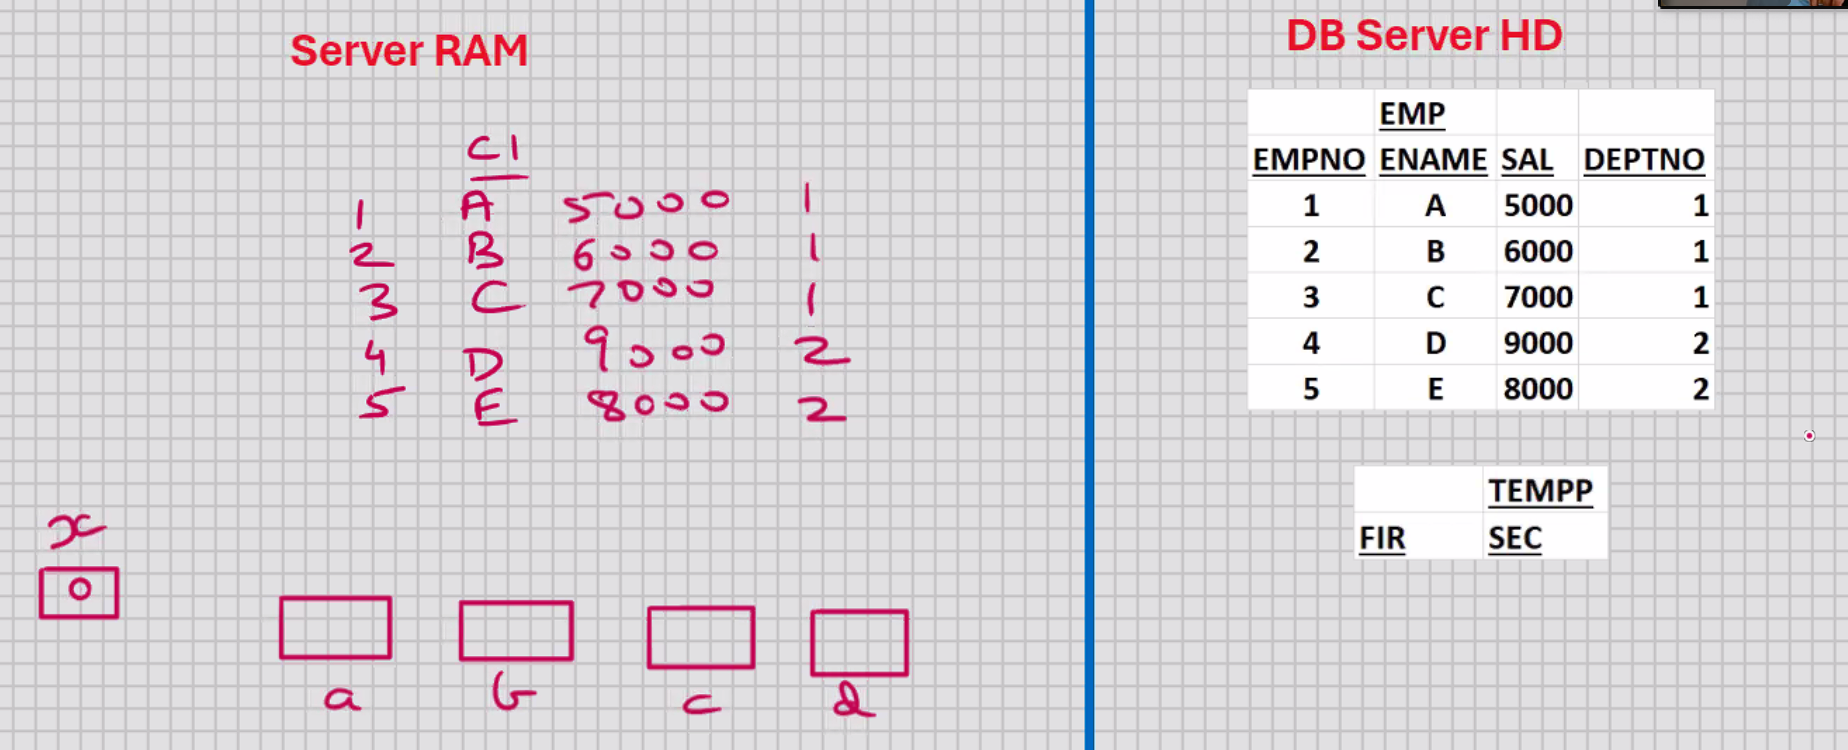 Server RAM
C1
1 A 5000 1
2 B 6000 1
3 C 7000 1
4 D 9000 2
5 E 8000 2
x
0
a b c d
DB Server HD
EMP
EMPNO ENAME SAL DEPTNO
1 A 5000 1
2 B 6000 1
3 C 7000 1
4 D 9000 2
5 E 8000 2
TEMPP
FIR SEC